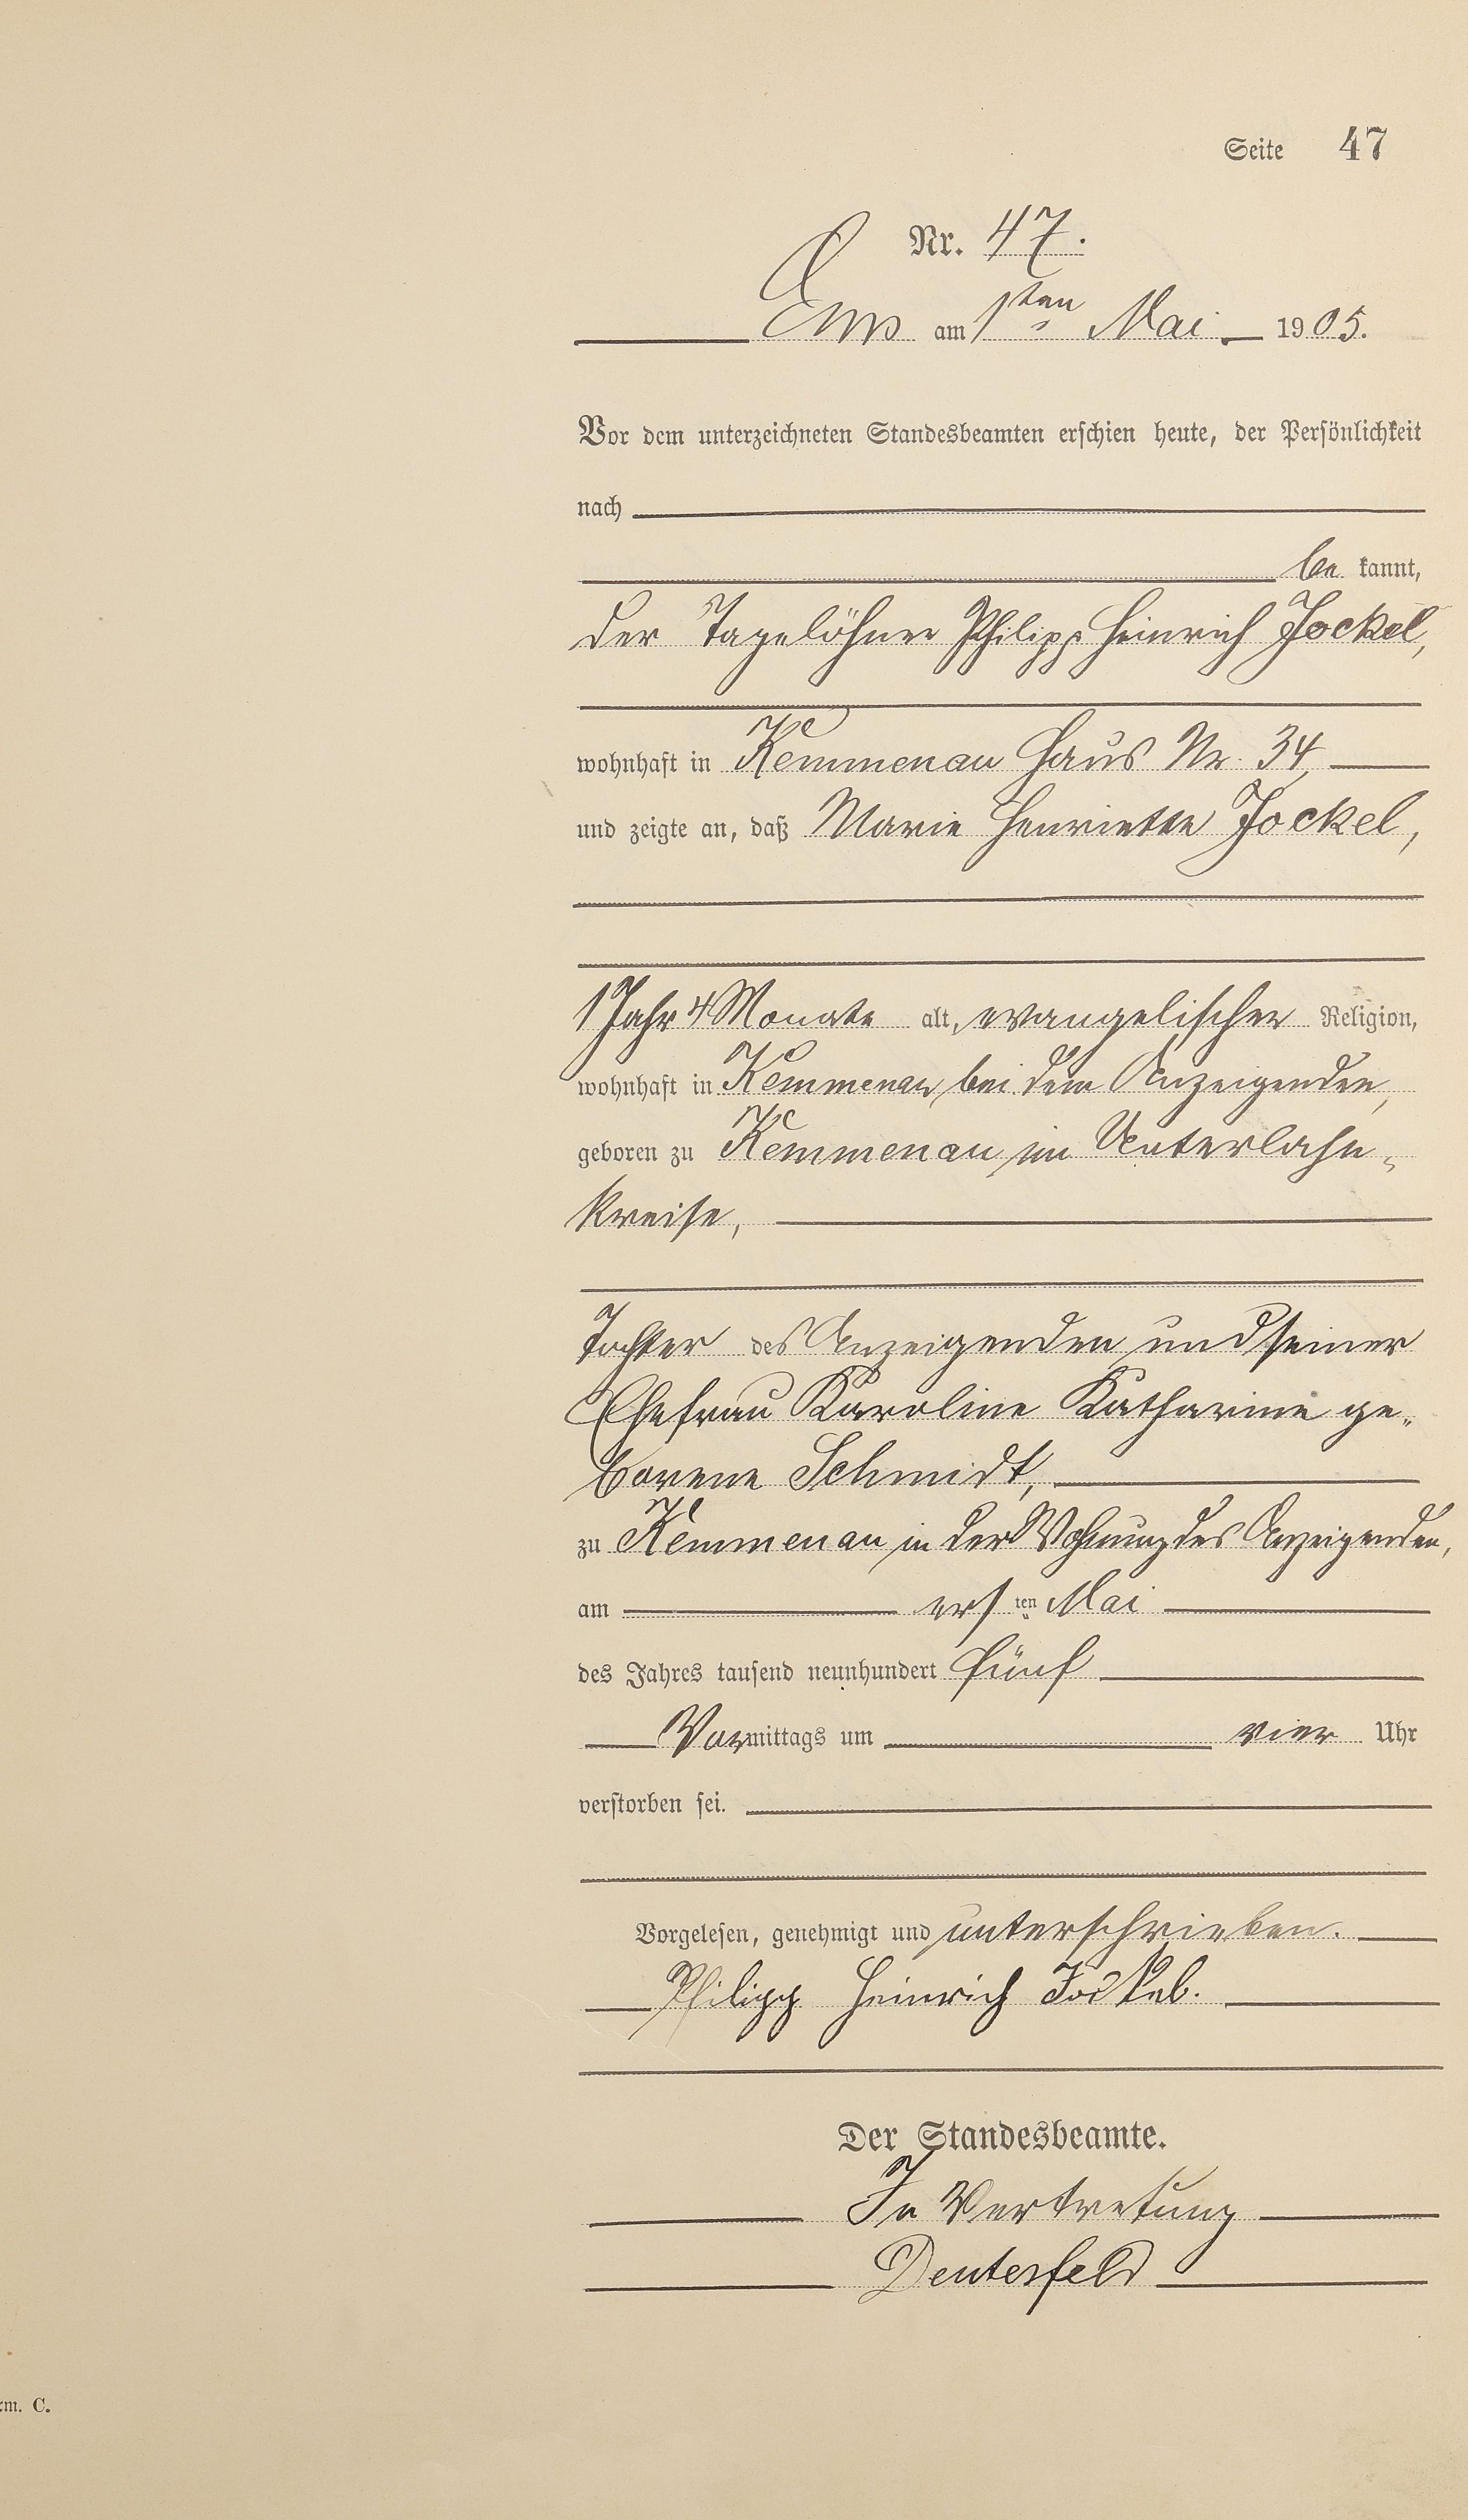 Seite 47
Nr. 47.
Ems am 1ten Mai 1905.
Vor dem unterzeichneten Standesbeamten erschien heute, der Persönlichkeit
nach
be kannt,
der Tagelöhner Philipp Heinrich Jockel,
wohnhaft in Kemmenau Haus Nr. 34,
und zeigte an, daß Marie Henriette Jockel,
1 Jahr 4 Monate alt, evangelischer Religion,
wohnhaft in Kemmenau, bei dem Anzeigenden,
geboren zu Kemmenau im Unterlahn-
kreise,
Tochter des Anzeigenden und seiner
Ehefrau Karoline Katharine ge-
borene Schmidt,
zu Kemmenau in der Wohnung des Anzeigenden,
am ersten Mai
des Jahres tausend neunhundert fünf
Vormittags um vier Uhr
verstorben sei.
Vorgelesen, genehmigt und unterschrieben.
Philipp Heinrich Jockel.
Der Standesbeamte.
In Vertretung
Deutesfeld
rm. C.